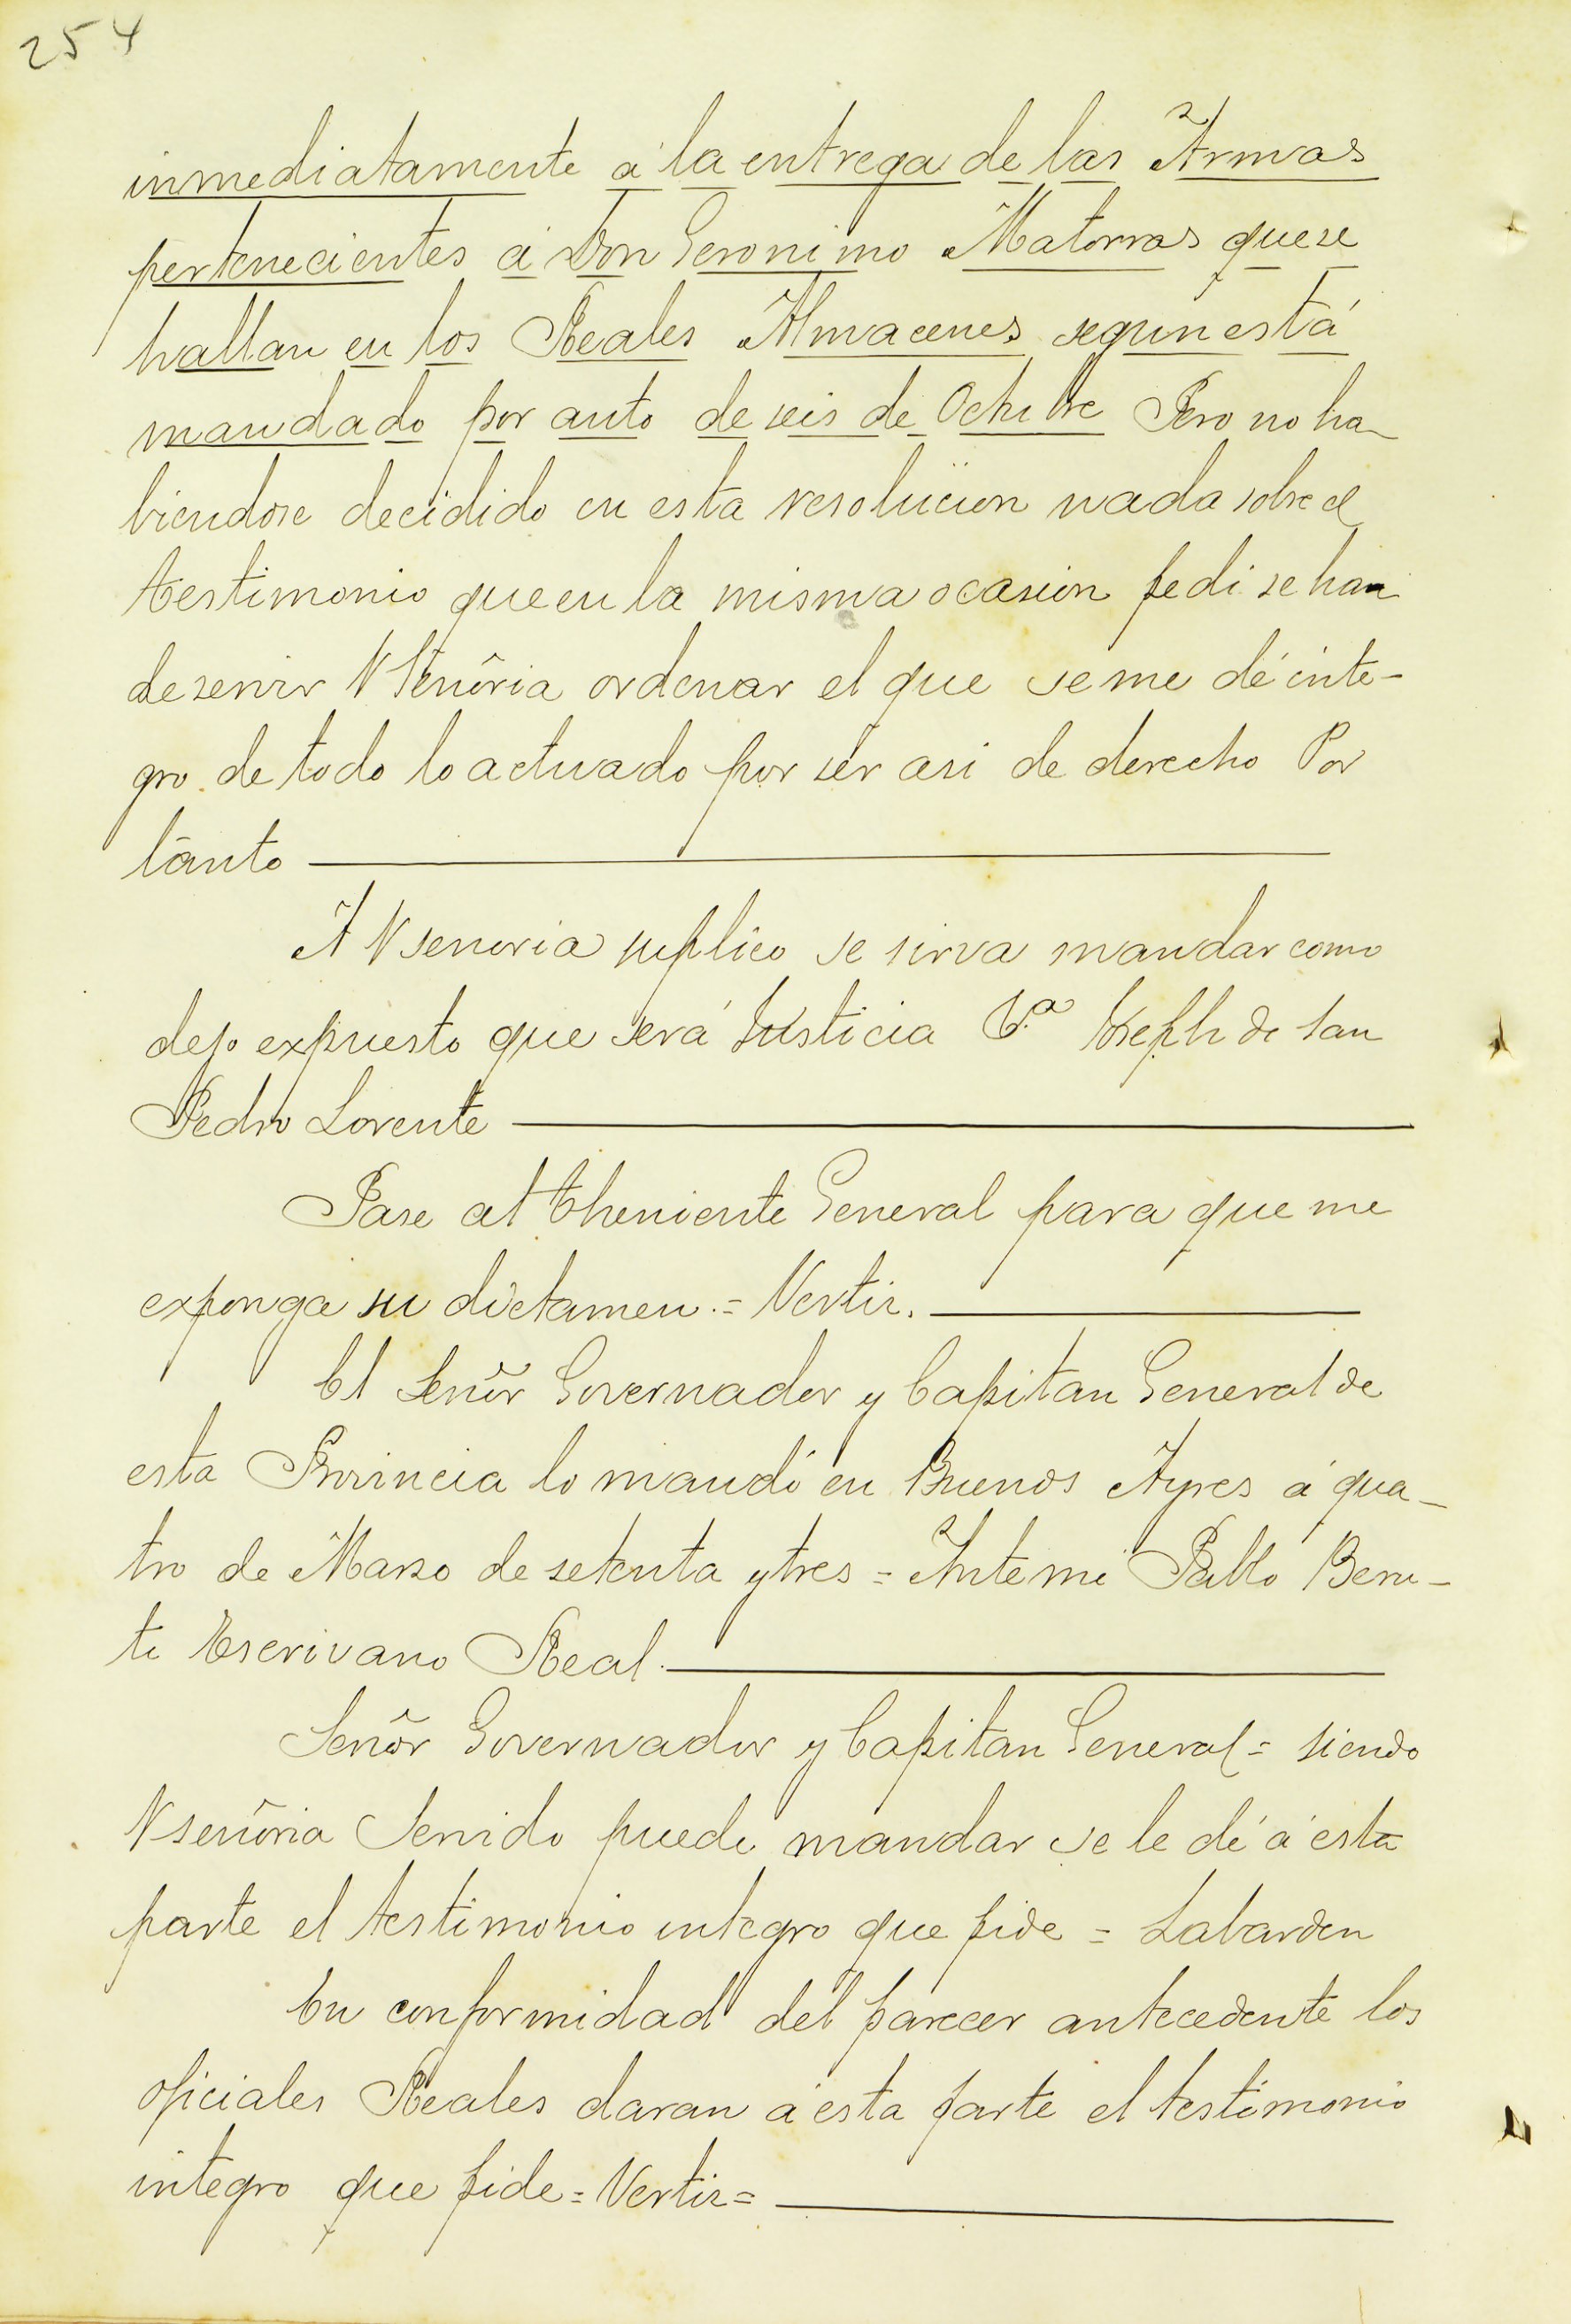 254
inmediatamente á la entrega de las Armas
pertenecientes á Don Geronimo Matorras que se
hallan en los Reales Almacenes segun está
mandado por auto de seis de Octubre Pero no ha-
biendose decidido en esta resolucion nada sobre el
testimonio que en la misma ocasion pedi se han
de servir V Señoria ordenar el que se me dé inte-
gro de todo lo actuado por ser asi de derecho Por
tanto
A V senoria suplico se sirva mandar como
dejo expuesto que será Justicia Vª Joseph de San
Pedro Lorente
Pase al Theniente General para que me
exponga su dictamen.= Vertiz.
El Señor Governador y Capitan General de
esta Provincia lo mandó en Buenos Ayres á qua-
tro de Marzo de setenta y tres = Ante mi Pablo Beru-
ti Escrivano Real.
Señor Governador y Capitan General = siendo
V señoria Servido puede mandar se le dé á esta
parte el testimonio integro que pide = Labarden
En conformidad del parecer antecedente los
oficiales Reales daran á esta parte el testimonio
integro que pide = Vertiz =